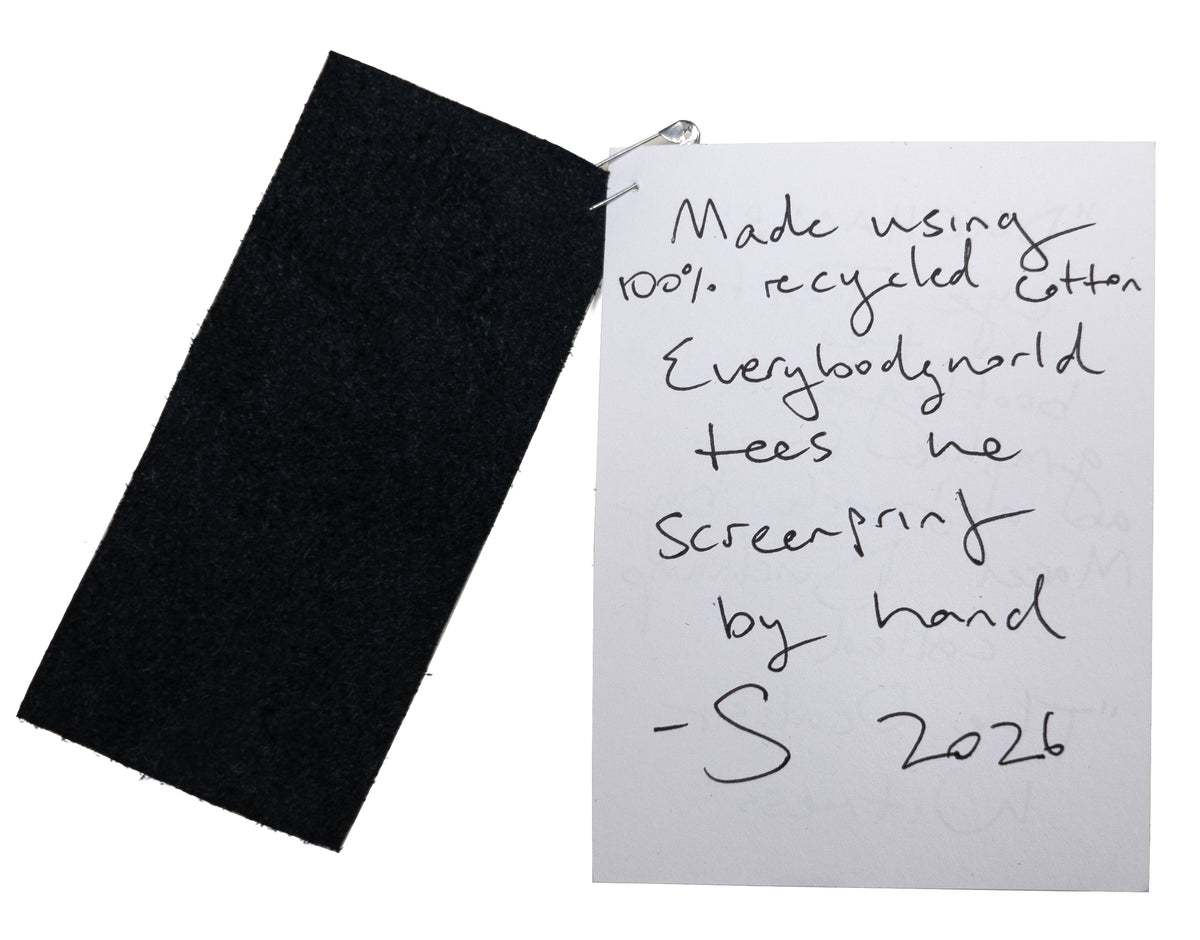 Made using
100% recycled cotton
Everybodyworld
tees we
screenprint
by hand
-S 2026